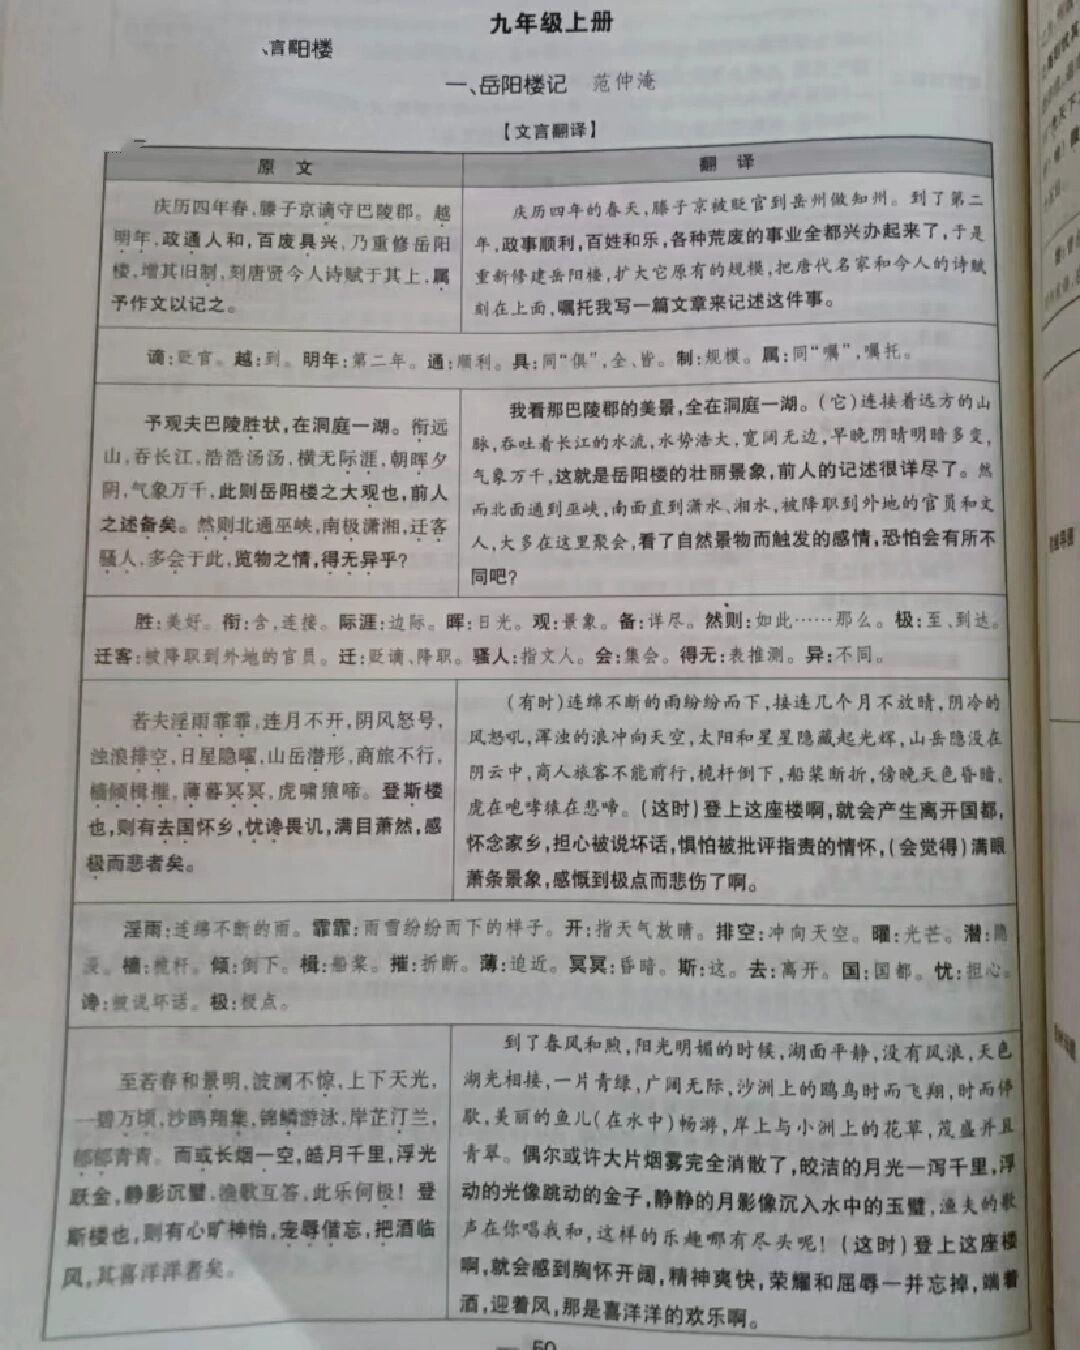 九年级上册
、言阳楼
一、岳阳楼记 范仲淹
【文言翻译】
原 文
翻 译
庆历四年春,滕子京谪守巴陵郡。越
明年,政通人和,百废具兴,乃重修岳阳
楼,增其旧制,刻唐贤今人诗赋于其上,属
予作文以记之。
庆历四年的春天,滕子京被贬官到岳州做知州。到了第二
年,政事顺利,百姓和乐,各种荒废的事业全都兴办起来了,于是
重新修建岳阳楼,扩大它原有的规模,把唐代名家和今人的诗赋
刻在上面,嘱托我写一篇文章来记述这件事。
谪:贬官。越:到。明年:第二年。通:顺利。具:同“俱”,全、皆。制:规模。属:同“嘱”,嘱托。
予观夫巴陵胜状,在洞庭一湖。衔远
山,吞长江,浩浩汤汤,横无际涯,朝晖夕
阴,气象万千,此则岳阳楼之大观也,前人
之述备矣。然则北通巫峡,南极潇湘,迁客
骚人,多会于此,览物之情,得无异乎?
我看那巴陵郡的美景,全在洞庭一湖。(它)连接着远方的山
脉,吞吐着长江的水流,水势浩大,宽阔无边,早晚阴晴明暗多变,
气象万千,这就是岳阳楼的壮丽景象,前人的记述很详尽了。然
而北面通到巫峡,南面直到潇水、湘水,被降职到外地的官员和文
人,大多在这里聚会,看了自然景物而触发的感情,恐怕会有所不
同吧?
胜:美好。衔:含,连接。际涯:边际。晖:日光。观:景象。备:详尽。然则:如此……那么。极:至、到达。
迁客:被降职到外地的官员。迁:贬谪、降职。骚人:指文人。会:集会。得无:表推测。异:不同。
若夫淫雨霏霏,连月不开,阴风怒号,
浊浪排空,日星隐曜,山岳潜形,商旅不行,
樯倾楫摧,薄暮冥冥,虎啸猿啼。登斯楼
也,则有去国怀乡,忧谗畏讥,满目萧然,感
极而悲者矣。
(有时)连绵不断的雨纷纷而下,接连几个月不放晴,阴冷的
风怒吼,浑浊的浪冲向天空,太阳和星星隐藏起光辉,山岳隐没在
阴云中,商人旅客不能前行,桅杆倒下,船桨断折,傍晚天色昏暗,
虎在咆哮猿在悲啼。(这时)登上这座楼啊,就会产生离开国都,
怀念家乡,担心被说坏话,惧怕被批评指责的情怀,(会觉得)满眼
萧条景象,感慨到极点而悲伤了啊。
淫雨:连绵不断的雨。霏霏:雨雪纷纷而下的样子。开:指天气放晴。排空:冲向天空。曜:光芒。潜:隐
没。樯:桅杆。倾:倒下。楫:船桨。摧:折断。薄:迫近。冥冥:昏暗。斯:这。去:离开。国:国都。忧:担心。
谗:被说坏话。极:极点。
至若春和景明,波澜不惊,上下天光,
一碧万顷,沙鸥翔集,锦鳞游泳,岸芷汀兰,
郁郁青青。而或长烟一空,皓月千里,浮光
跃金,静影沉璧,渔歌互答,此乐何极!登
斯楼也,则有心旷神怡,宠辱偕忘,把酒临
风,其喜洋洋者矣。
到了春风和煦,阳光明媚的时候,湖面平静,没有风浪,天色
湖光相接,一片青绿,广阔无际,沙洲上的鸥鸟时而飞翔,时而停
歇,美丽的鱼儿(在水中)畅游,岸上与小洲上的花草,茂盛并且
青翠。偶尔或许大片烟雾完全消散了,皎洁的月光一泻千里,浮
动的光像跳动的金子,静静的月影像沉入水中的玉璧,渔夫的歌
声在你唱我和,这样的乐趣哪有尽头呢!(这时)登上这座楼
啊,就会感到胸怀开阔,精神爽快,荣耀和屈辱一并忘掉,端着
酒,迎着风,那是喜洋洋的欢乐啊。